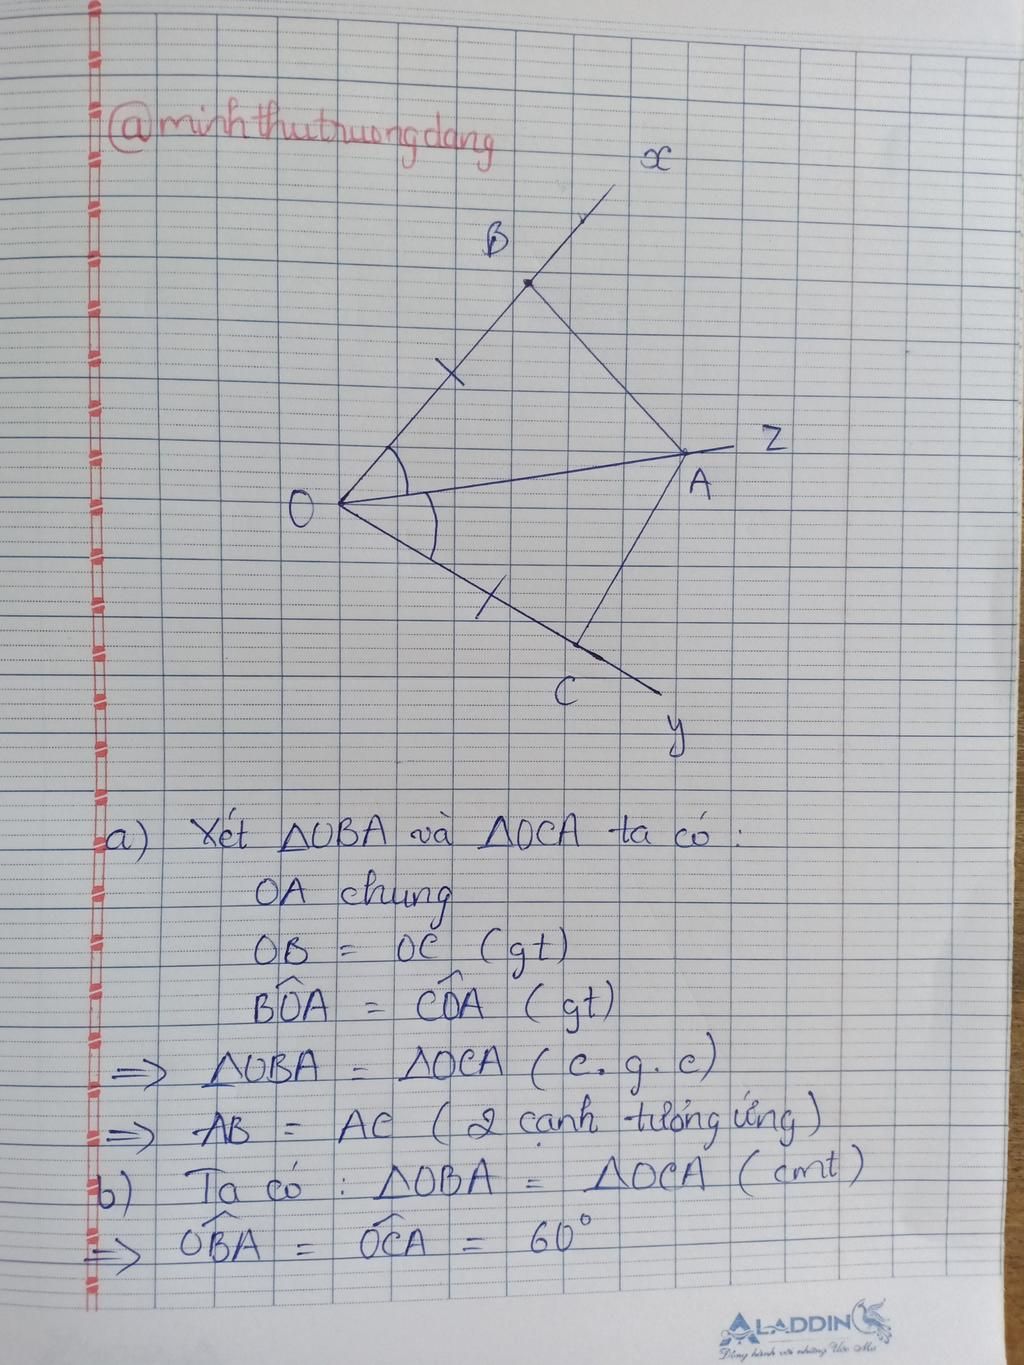 @minhthutruongdang
x
B
z
A
O
C
y
a) Xét ΔOBA và ΔOCA ta có :
OA chung
OB = OC (gt)
BÔA = CÔA (gt)
=> ΔOBA = ΔOCA (c.g.c)
=> AB = AC (2 cạnh tương ứng)
b) Ta có : ΔOBA = ΔOCA (cmt)
=> OB̂A = OĈA = 60°
ALADDIN
Đồng hành với những Ước Mơ